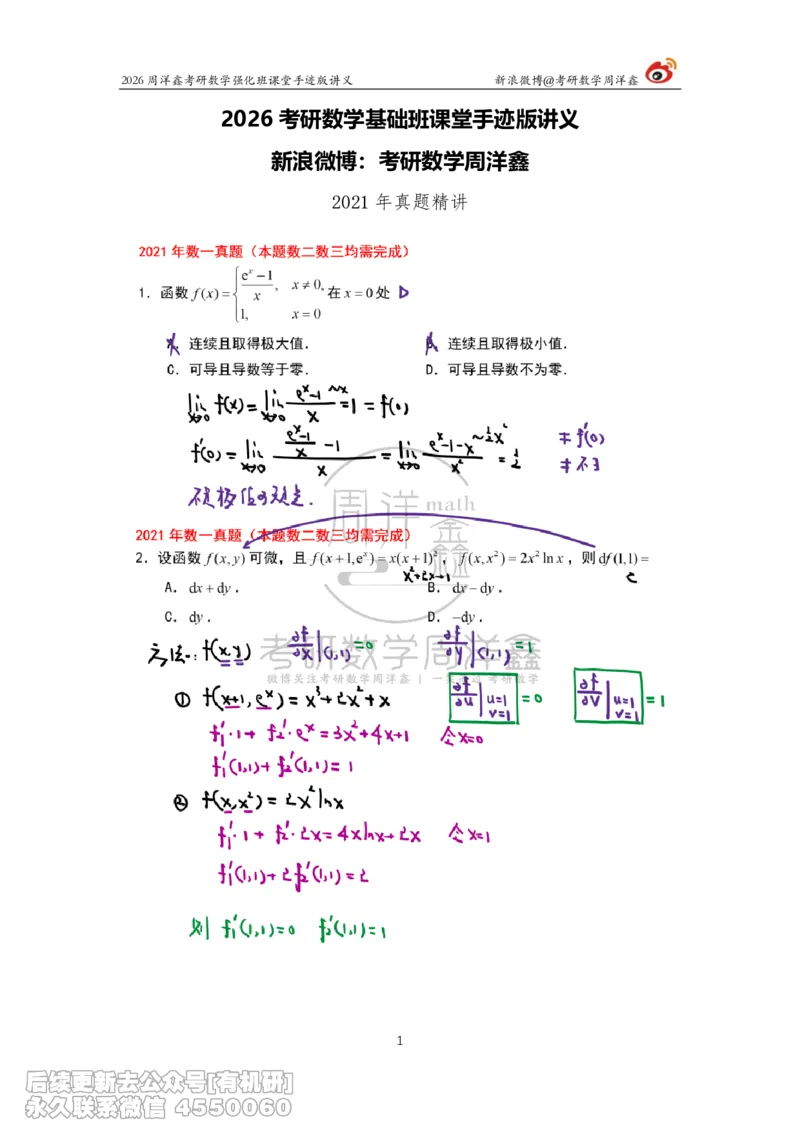 2026周洋鑫考研数学强化班课堂手迹版讲义 新浪微博@考研数学周洋鑫
2026 考研数学基础班课堂手迹版讲义
新浪微博：考研数学周洋鑫
2021 年真题精讲
2021 年数一真题（本题数二数三均需完成）
1．函数 f(x) = { (e^x − 1)/x, x ≠ 0, 1, x = 0 在 x = 0 处 D
A．连续且取得极大值． B．连续且取得极小值．
C．可导且导数等于零． D．可导且导数不为零．
lim_{x→0} f(x) = lim_{x→0} (e^x−1 ~x)/x = 1 = f(0)
f'(0) = lim_{x→0} ((e^x−1)/x − 1)/x = lim_{x→0} (e^x−1−x ~½x²)/x² = ½
≠ f'(0)
≠ 不∃
周洋鑫 math
2021 年数一真题（本题数二数三均需完成）
2．设函数 f(x,y) 可微，且 f(x+1,e^x) = x(x+1)²，f(x,x²) = 2x² ln x，则 df(1,1) =
x²+2x+1 C
A．dx+dy． B．dx−dy．
C．dy． D．−dy．
考研数学周洋鑫
f(x,y) ∂f/∂x|(1,1) =0 ∂f/∂y|(1,1) =1
① f(x+1, e^x) = x³+2x²+x ∂f/∂u|u=1 v=1 =0 ∂f/∂v|u=1 v=1 =1
f₁'·1+ f₂'·e^x = 3x²+4x+1 令x=0
f₁'(1,1)+ f₂'(1,1)= 1
② f(x,x²) = 2x² lnx
f₁'·1+ f₂'·2x = 4xlnx+2x 令x=1
f₁'(1,1)+2f₂'(1,1) = 2
则 f₁'(1,1)=0 f₂'(1,1)=1
1
后续更新去公众号[有机研]
永久联系微信 4550060